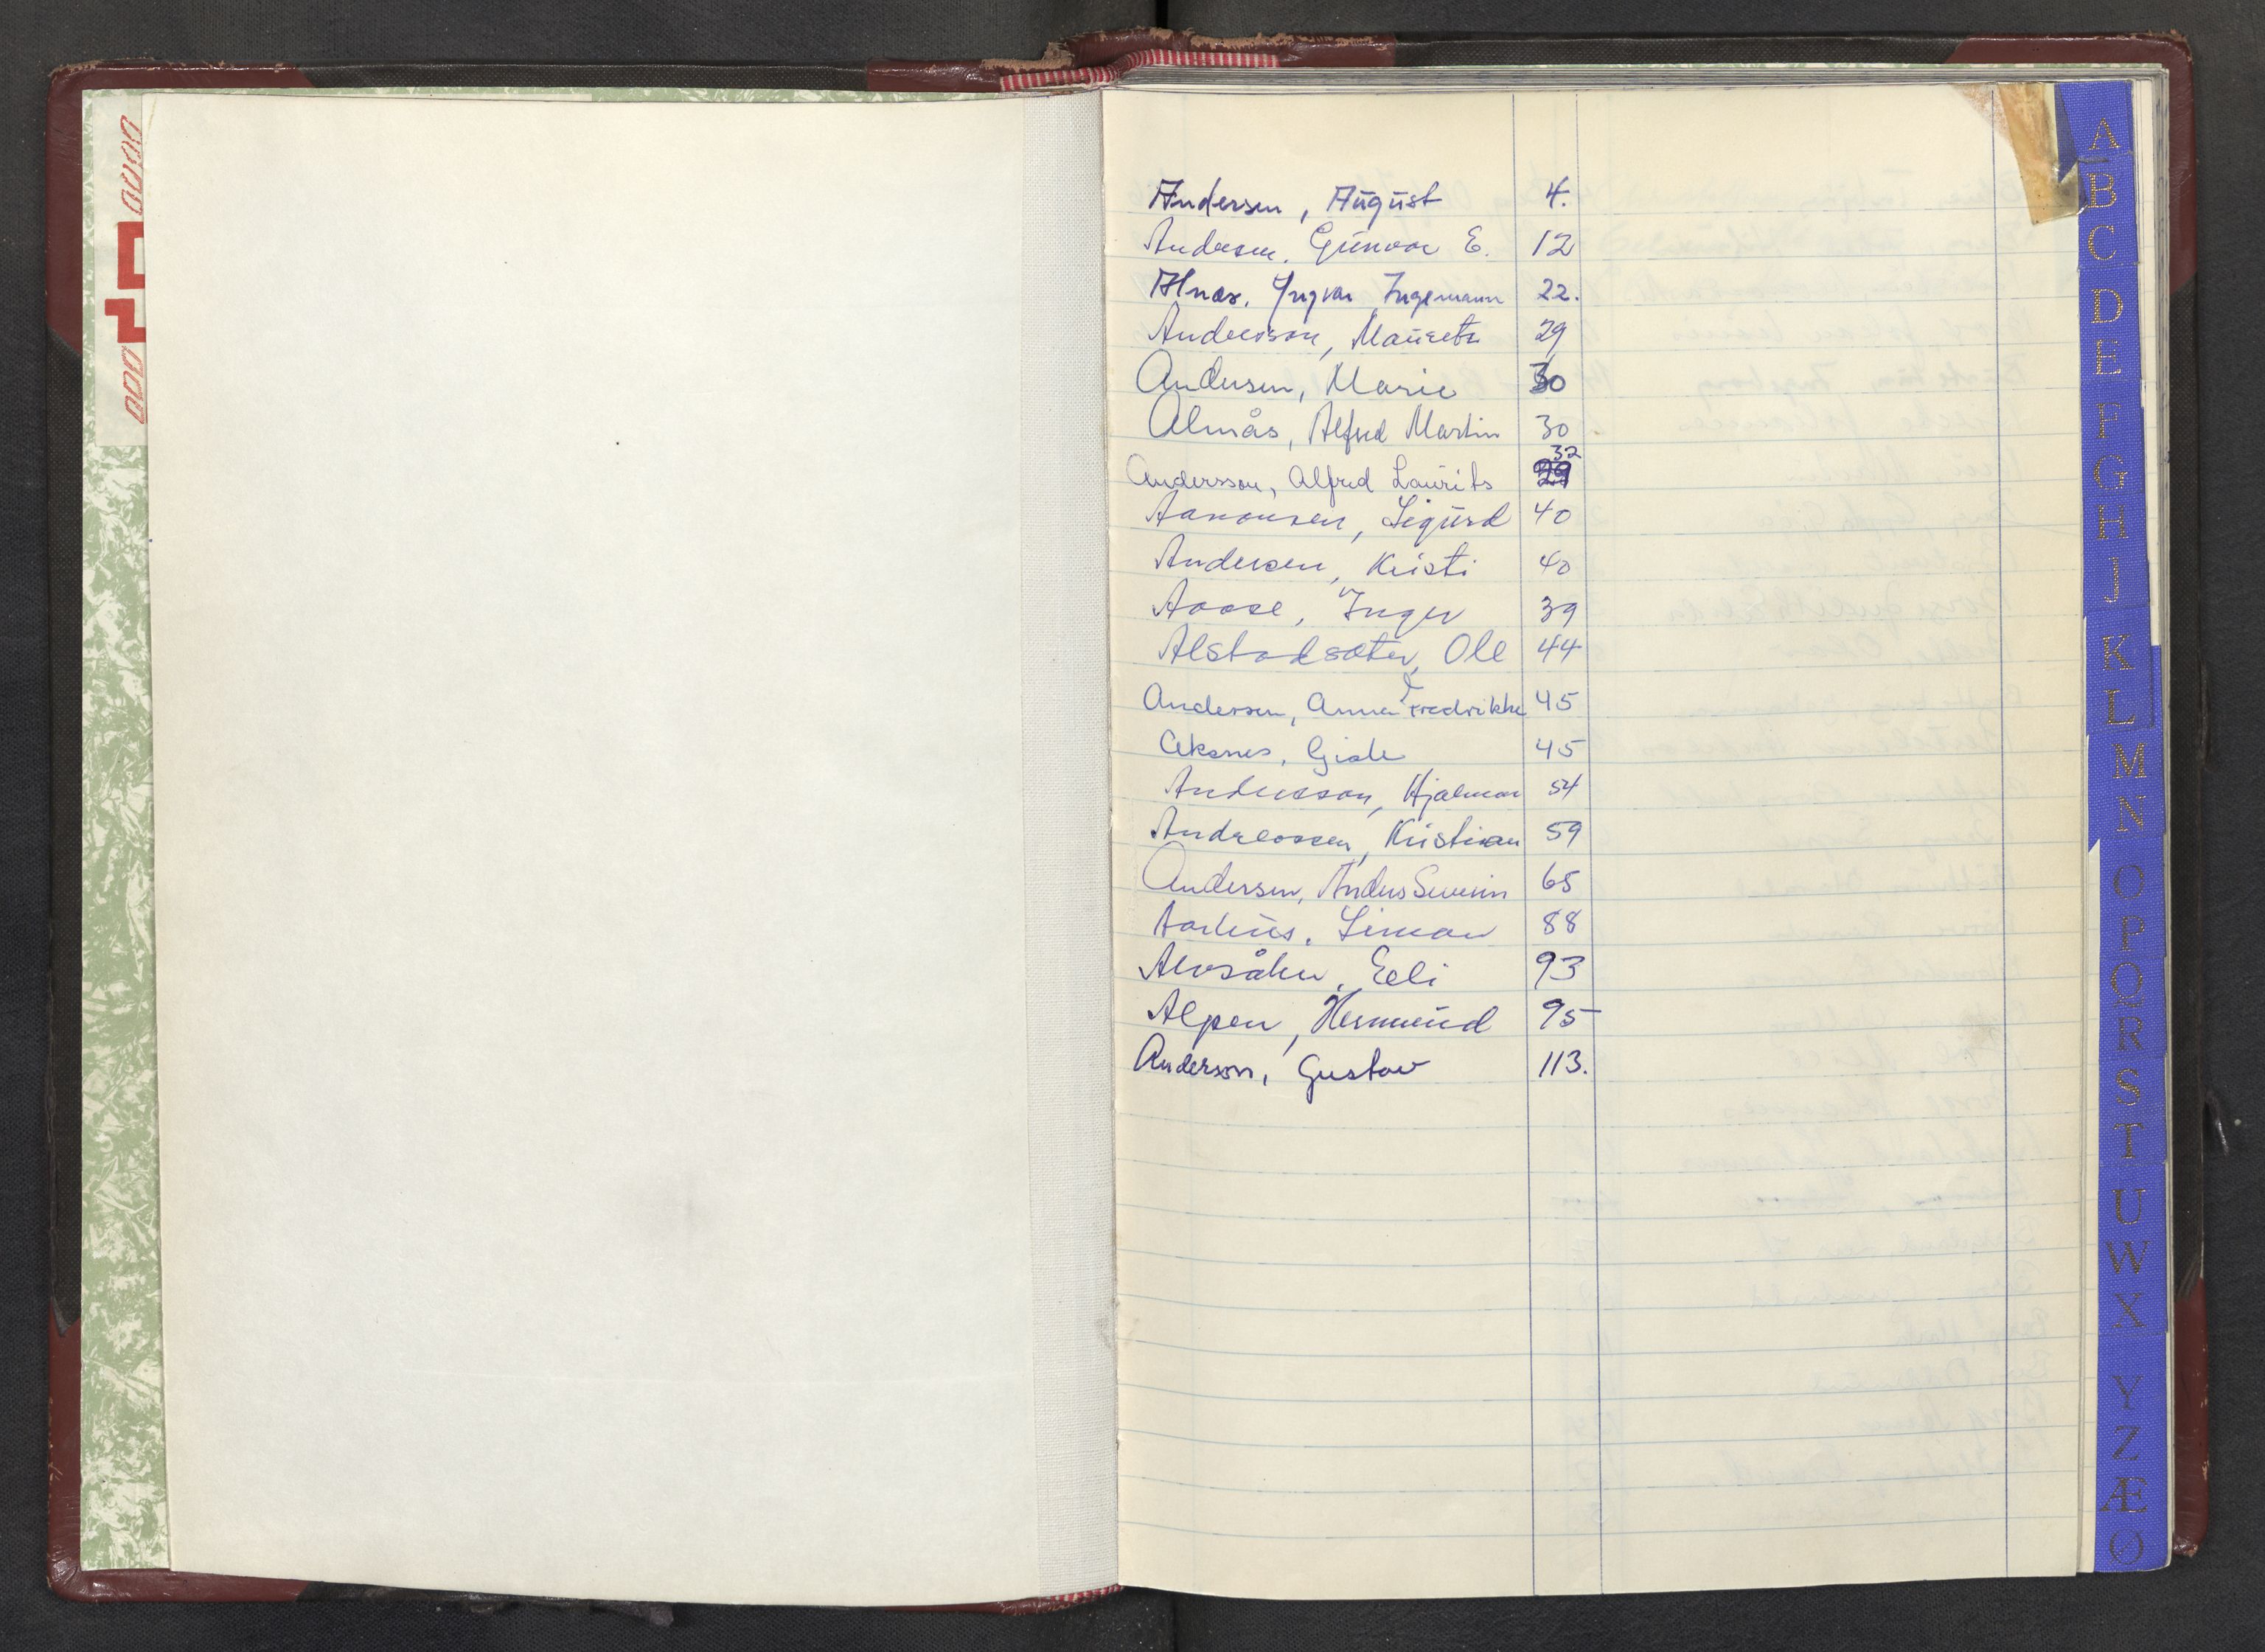 Andersen, August 4.
Andersen, Gunvor E. 12
Alnæs, Yngvar Ingemann 22.
Andersson, Mauritz 29
Andersen, Marie 30
Almås, Alfred Martin 30
Andersson, Alfred Laurits 32
Aanonsen, Sigurd 40
Andersen, Kirsti 40
Aaase, Inger 39
Alstadsæter, Ole 44
Andersen, Anna Fredrikke 45
Aksnes, Gisle 45
Andersson, Hjalmar 54
Andreassen, Kristian 59
Andersen, Anders Severin 65
Aarhus, Simon 88
Alvsåker, Elli 93
Alpen, Hermund 95
Anderson, Gustav 113.
A
B
C
D
E
F
G
H
J
K
L
M
N
O
P
Q
R
S
T
U
W
X
Y
Z
Æ
Ø